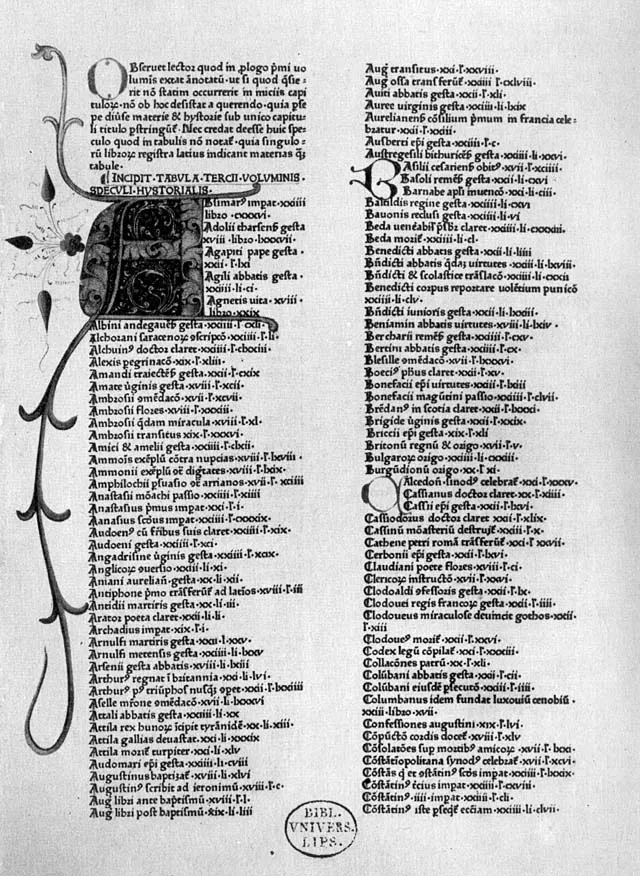 OBseruet lector quod in ꝓlogo pͥmi uo
lumīs extat ānotatū. ut si quod q̄sie⸗
rit nō statim occurrerit in miciis capi
tuloꝝ. nō ob hoc desistat a querendo. quia pse
pe diuse materie & hystorie sub unico capitu⸗
li titulo pstringūt. Nec credat deesse huic spe⸗
culo quod in tabulis nō notat᷑. quia singulo⸗
rū libroꝝ registra latius indicant materias q̄ȝ
tabule.
INCIPIT. TABVLA. TERCII. VOLVMINIS.
SPECVLI. HYSTORIALIS.
libro .cxxxvi.
Adolii tharsens̄ gesta
xviii .libro. lxxxvii.
Agapiti pape gesta.
xxii .ī. lxi
Agili abbatis gesta.
xxiiii. li. ci.
Agnetis uita .xviii.
libro. xxix
Albini andegauēs̄ gesta. xxiii. ī. cxli.
Alexis pegrinacō. xix. ī. xliii.
Amandi traiectēs̄ gesta. xxii. ī. cxix
Amate ūginis gesta. xviii. ī. xcii.
Ambrosii ꝯmēdacō. xvii. ī. xcvii.
Ambrosii flores. xviii. ī. xxxiii.
Ambrosii q̄dam miracula. xviii. ī. xl.
Ambrosii transitus xix. ī. xxxvi.
Amici & amelii gesta. xxiiii. ī.
Anastasii mōachi passio. xxiiii. ī. xiiii
Anastasius pͥmus impat. xxi. ī. i.
Audoeni gesta. xxiiii. ī. xci.
Angadrisine ūginis gesta. xxiiii. ī. xcix.
Aniani aurelian̄. gesta. xx. li. xii.
Antidii martiris gesta. xx. li. iii.
Arator poeta claret. xxii. li. li.
Archadius impat. xix. ī. i.
Arnulfi martiris gesta. xxii. ī. xxv.
Arnulfi metensis gesta. xxiiii. li. lxxv
Arsenii gesta abbatis. xviii. li. lxiii
Arthurꝰ regnat ī britannia. xxi. li. lvi.
Attali abbatis gesta. xxiiii. li. xx
Attila rex hunoꝝ īcipit tyrānidē. xx. li. xiii.
Attila gallias deuastat. xxi. li. xxxix
Attila morit᷑ turpiter. xxi. li. xlv
Audomari ep̄i gesta. xxiiii. li. cviii
Augustinus baptizat᷑. xviii. li. xlvi
Augustinꝰ scribit ad ieronimū. xviii. ī. c.
Augꝰ libri ante baptismū. xviii. ī. l.
Augꝰ libri post baptismū. xix. li. liii
Augꝰ transitus. xxi. ī. xxviii.
Augꝰ ossa transferūt᷑. xxiiii. ī. cxlviii.
Auiti abbatis gesta. xxii. ī. xli.
Auree uirginis gesta. xxiiii. li. lxix
Aurelianens̄ cōsilium pͥmum in francia cele⸗
bratur. xxii. ī. xxiii.
Ausberti ep̄i gesta. xxiiii. ī. c.
Austregesili bithuricēs̄ gesta. xxiiii. li. xxvi.
BAsilii cesariens̄ obitꝰ. xvii. ī. xciiii.
Basoli remēs̄ gesta. xxii. li. cxvi
Barnabe apl̄i inuentō. xxi. li. ciii.
Batildis regine gesta. xxiiii. li. cxvi
Bauonis reclusi gesta. xxiiii. li. vi
Beda uenēabil̓ pͥsbꝛ claret. xxiiii. li. cxxxiii.
Beda morit᷑. xxiiii. li. cl.
Benedicti abbatis gesta. xxii. li. liiii
Bn̄dicti abbatis q̄daȝ uirtutes. xxiiii. li. lxviii.
Bn̄dicti & scolastice trāslacō. xxiiii. li. cxxii
Benedicti corpus reportare uolētium punicō
xxiiii. li. clv.
Bn̄dicti iunioris gesta. xxii. li. lxxiii.
Beniamin abbatis uirtutes. xviii. li. lxiv.
Bercharii remēs̄ gesta. xxiiii. ī. cxv.
Bertini abbatis gesta. xxiiii. ī. cx.
Blesille ꝯmēdacō. xvii. ī. lxxxvi.
Boeciꝰ ph̄us claret. xxii. ī. xv.
Bonefacii ep̄i uirtutes. xxiii. ī. lxiii
Bonefacii magūtini passio. xxiiii. ī. clvii.
Brēdanꝰ in scotia claret. xxii. ī. lxxxi.
Brigide ūginis gesta. xxii. ī. xxix.
Briccii ep̄i gesta. xix. ī. xli
Britonū regnū & origo. xvii. ī. v.
Bulgaroꝝ origo. xxiiii. li. cxxiii.
Burgūdionū origo. xx. ī. xi.
CAlcedon̄. sinodꝰ celebrat᷑. xxi. ī. xxxv.
Cassianus doctor claret. xx. ī. xiiii.
Cassii ep̄i gesta. xxii. ī. lxvi.
Cassiodorus doctor claret. xxii. ī. xlix.
Cassinū mōasteriū destruit᷑. xxiii. ī. x.
Cathene petri romā trāsferūt᷑. xxi. ī. xxvii.
Cerbonii ep̄i gesta. xxii. ī. lxvi.
Claudiani poete flores. xviii. ī. ci.
Clericoꝝ instructō. xvii. ī. xxvi.
Clodoaldi ꝯfessoris gesta. xxii. ī. lx.
Clodouei regis francoꝝ gesta. xxii. ī. iiii.
Clodoueus miraculose deuincit gothos. xxii.
ī. xiii
Clodoueꝰ morit᷑. xxii. ī. xxvi.
Codex legū cōpilat᷑. xxi. ī. xxxiii.
Collacōnes patrū. xx. ī. xli.
Colūbani abbatis gesta. xxii. ī. cii.
Colūbani eiusdē ꝑsecutō. xxiii. ī. iiii.
Columbanus idem fundat luxouiū cenobiū.
xxiii. libro. xvii.
Confessiones augustini. xix. ī. lvi.
Cōpūctō cordis docet᷑. xviii. ī. xv.
Cōsolatōes sup mortibꝰ amicoꝝ. xvii. ī. lxxi.
Cōstātīopolitana synodꝰ celebrat᷑. xvii. ī. xcvi.
Cōstātinꝰ tercius impat. xxiiii. ī. cxviii.
Cōstātinꝰ. iiii. impat. xxiiii. ī. cli.
Cōstātinꝰ iste ꝑseqt᷑ ecc̄iam. xxiiii. li. clvii.
BIBL.
VNIVERS.
LIPS.